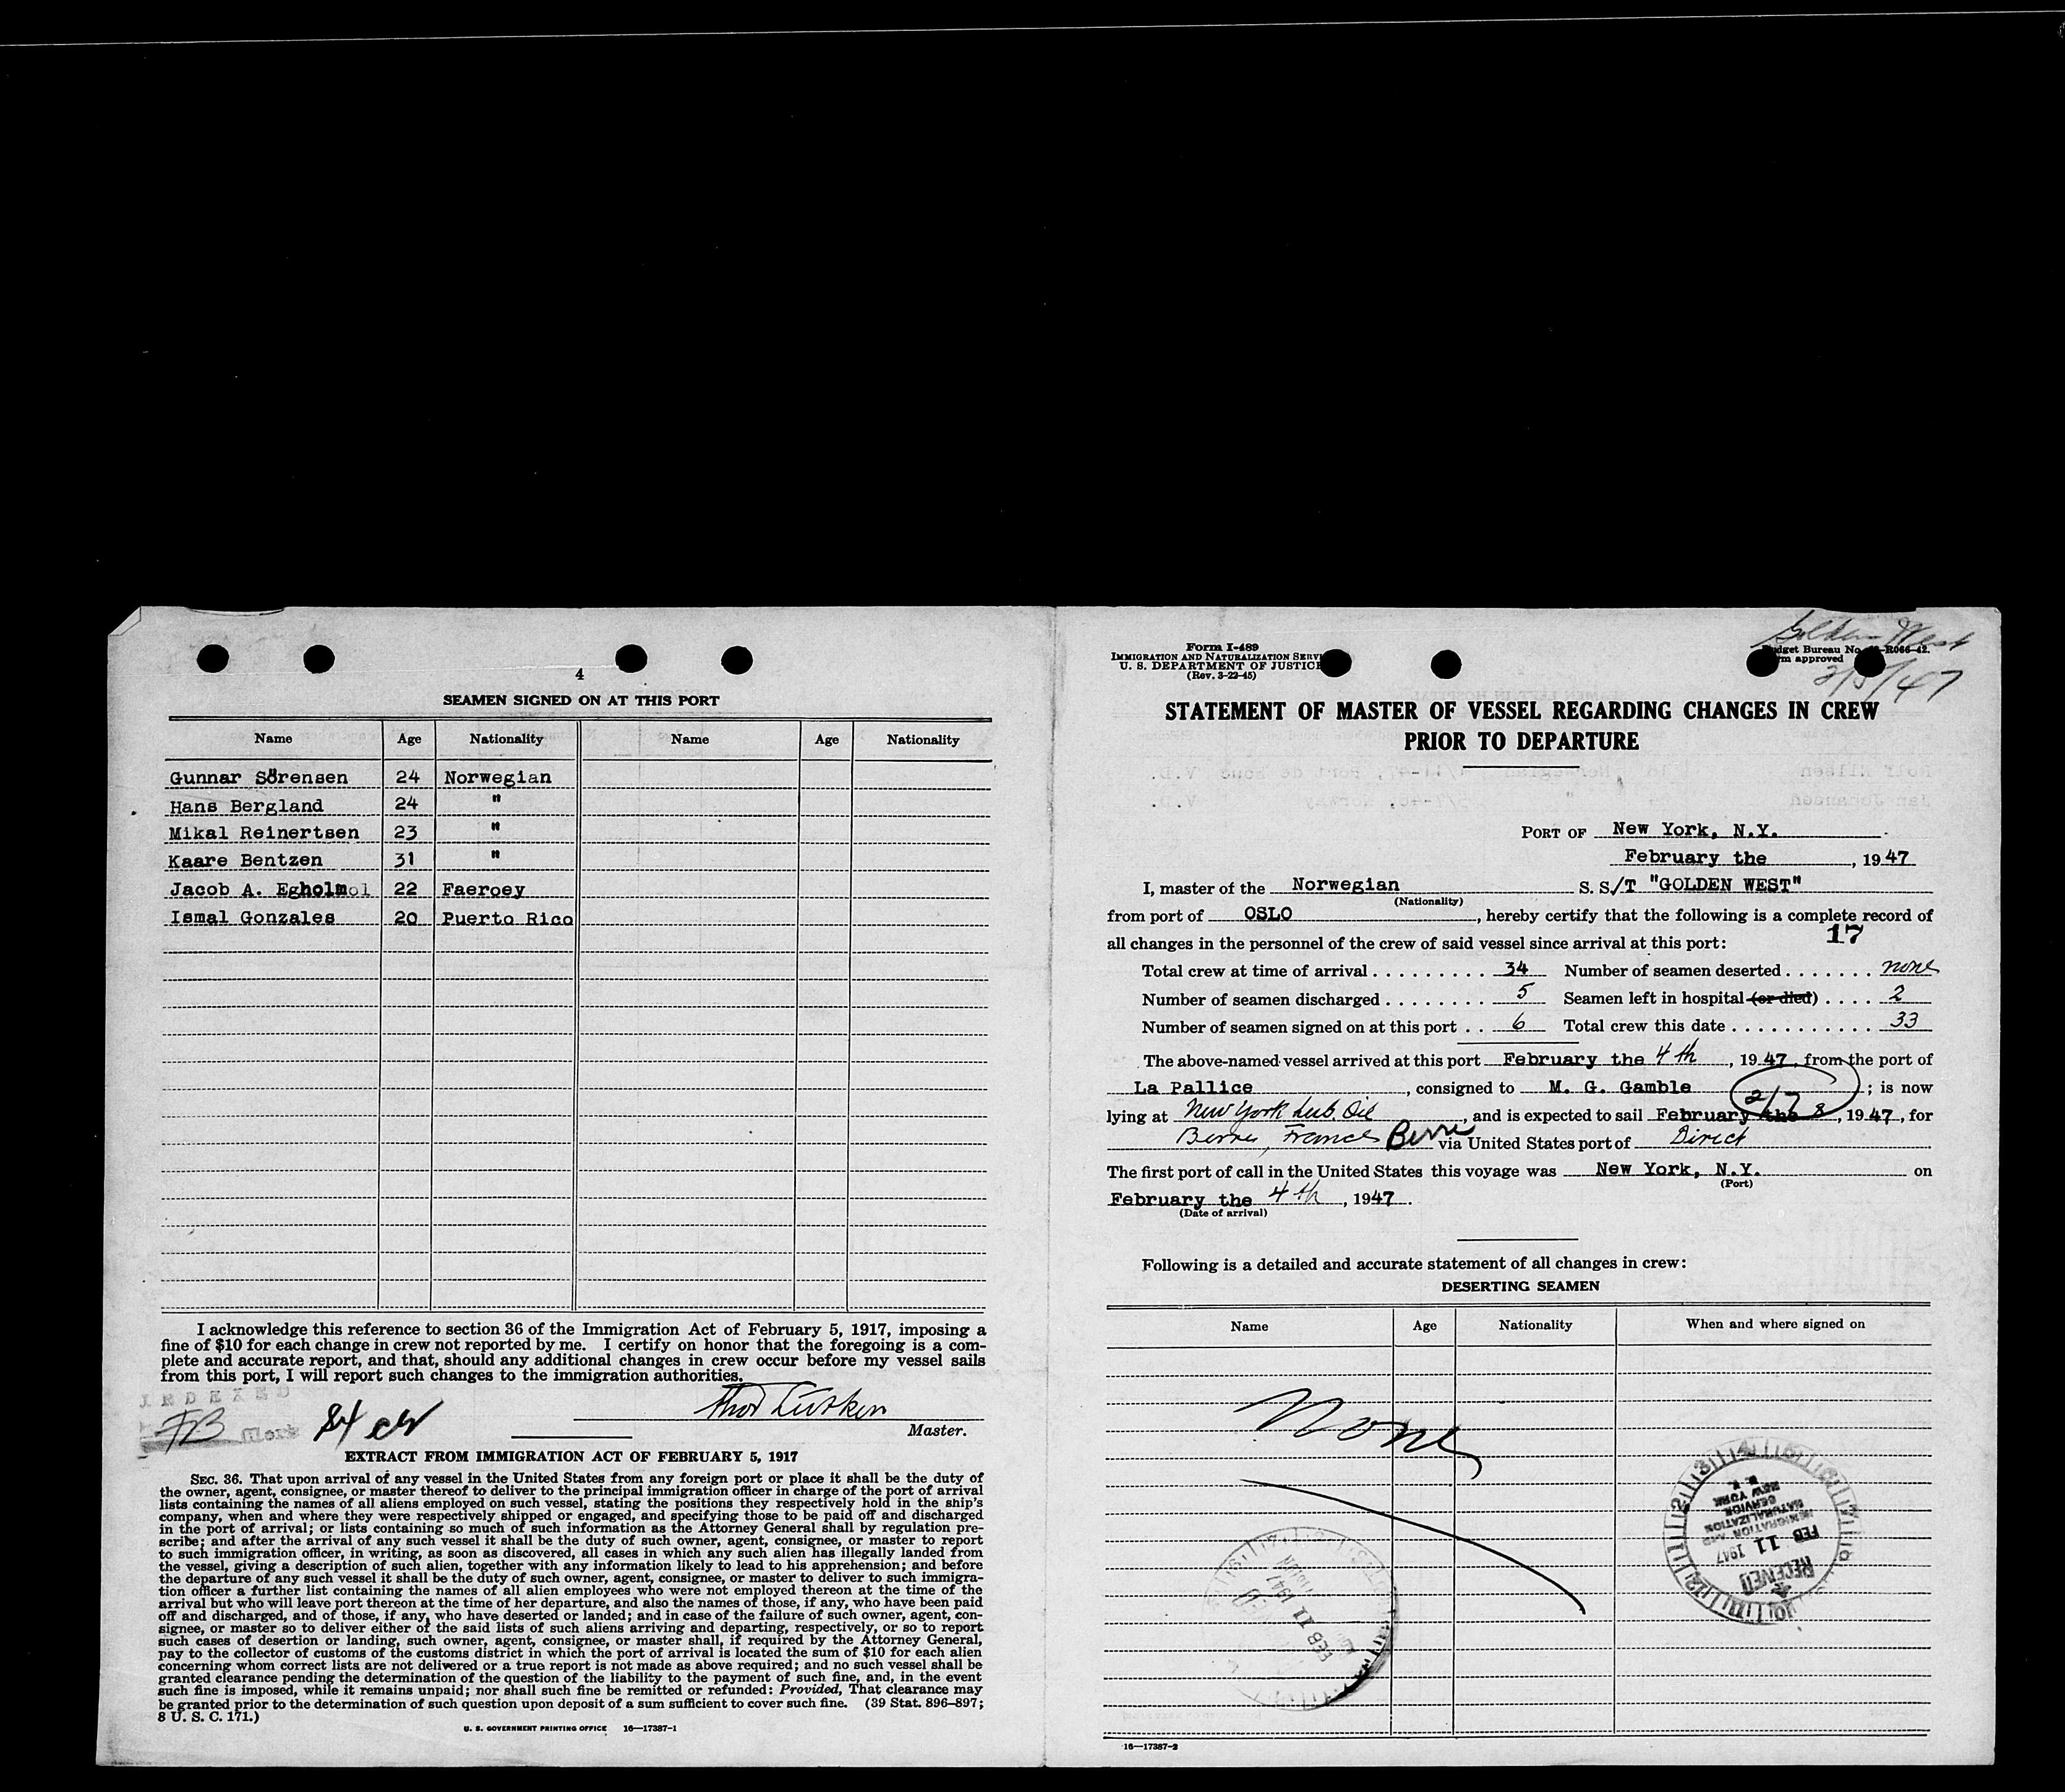 4
SEAMEN SIGNED ON AT THIS PORT
Name Age Nationality Name Age Nationality
Gunnar Sörensen 24 Norwegian
Hans Bergland 24 "
Mikal Reinertsen 23 "
Kaare Bentzen 31 "
Jacob A. Egholm 22 Faeroey
Ismal Gonzales 20 Puerto Rico
I acknowledge this reference to section 36 of the Immigration Act of February 5, 1917, imposing a
fine of $10 for each change in crew not reported by me. I certify on honor that the foregoing is a com-
plete and accurate report, and that, should any additional changes in crew occur before my vessel sails
from this port, I will report such changes to the immigration authorities.
INDEXED
FB
Master.
EXTRACT FROM IMMIGRATION ACT OF FEBRUARY 5, 1917
SEC. 36. That upon arrival of any vessel in the United States from any foreign port or place it shall be the duty of
the owner, agent, consignee, or master thereof to deliver to the principal immigration officer in charge of the port of arrival
lists containing the names of all aliens employed on such vessel, stating the positions they respectively hold in the ship's
company, when and where they were respectively shipped or engaged, and specifying those to be paid off and discharged
in the port of arrival; or lists containing so much of such information as the Attorney General shall by regulation pre-
scribe; and after the arrival of any such vessel it shall be the duty of such owner, agent, consignee, or master to report
to such immigration officer, in writing, as soon as discovered, all cases in which any such alien has illegally landed from
the vessel, giving a description of such alien, together with any information likely to lead to his apprehension; and before
the departure of any such vessel it shall be the duty of such owner, agent, consignee, or master to deliver to such immigra-
tion officer a further list containing the names of all alien employees who were not employed thereon at the time of the
arrival but who will leave port thereon at the time of her departure, and also the names of those, if any, who have been paid
off and discharged, and of those, if any, who have deserted or landed; and in case of the failure of such owner, agent, con-
signee, or master so to deliver either of the said lists of such aliens arriving and departing, respectively, or so to report
such cases of desertion or landing, such owner, agent, consignee, or master shall, if required by the Attorney General,
pay to the collector of customs of the customs district in which the port of arrival is located the sum of $10 for each alien
concerning whom correct lists are not delivered or a true report is not made as above required; and no such vessel shall be
granted clearance pending the determination of the question of the liability to the payment of such fine, and, in the event
such fine is imposed, while it remains unpaid; nor shall such fine be remitted or refunded: Provided, That clearance may
be granted prior to the determination of such question upon deposit of a sum sufficient to cover such fine. (39 Stat. 896–897;
8 U. S. C. 171.)
U. S. GOVERNMENT PRINTING OFFICE 16—17387-1
Golden West
Form I-489
IMMIGRATION AND NATURALIZATION SERVI
U. S. DEPARTMENT OF JUSTICE
(Rev. 3-22-45)
dget Bureau No. R066-42.
rm approved
2/5/47
STATEMENT OF MASTER OF VESSEL REGARDING CHANGES IN CREW
PRIOR TO DEPARTURE
PORT OF New York, N.Y.
February the , 1947
I, master of the Norwegian S. S/T "GOLDEN WEST"
(Nationality)
from port of OSLO , hereby certify that the following is a complete record of
all changes in the personnel of the crew of said vessel since arrival at this port: 17
Total crew at time of arrival . . . . . . . . . 34 Number of seamen deserted . . . . . . . none
Number of seamen discharged . . . . . . . . 5 Seamen left in hospital (or died) . . . . 2
Number of seamen signed on at this port . . 6 Total crew this date . . . . . . . . . . . 33
The above-named vessel arrived at this port February the 4th , 1947 , from the port of
La Pallice , consigned to M. G. Gamble ; is now
lying at New York Lub. Oil , and is expected to sail February the 8 2/7 , 1947 , for
Berre, France Berre via United States port of Direct
The first port of call in the United States this voyage was New York, N.Y. on
(Port)
February the 4th , 1947 .
(Date of arrival)
Following is a detailed and accurate statement of all changes in crew:
DESERTING SEAMEN
Name Age Nationality When and where signed on
None
RECEIVED
FEB 11 1947
IMMIGRATION AND
NATURALIZATION
SERVICE
NEW YORK
N. Y.
FEB 11 1947
16—17387-2